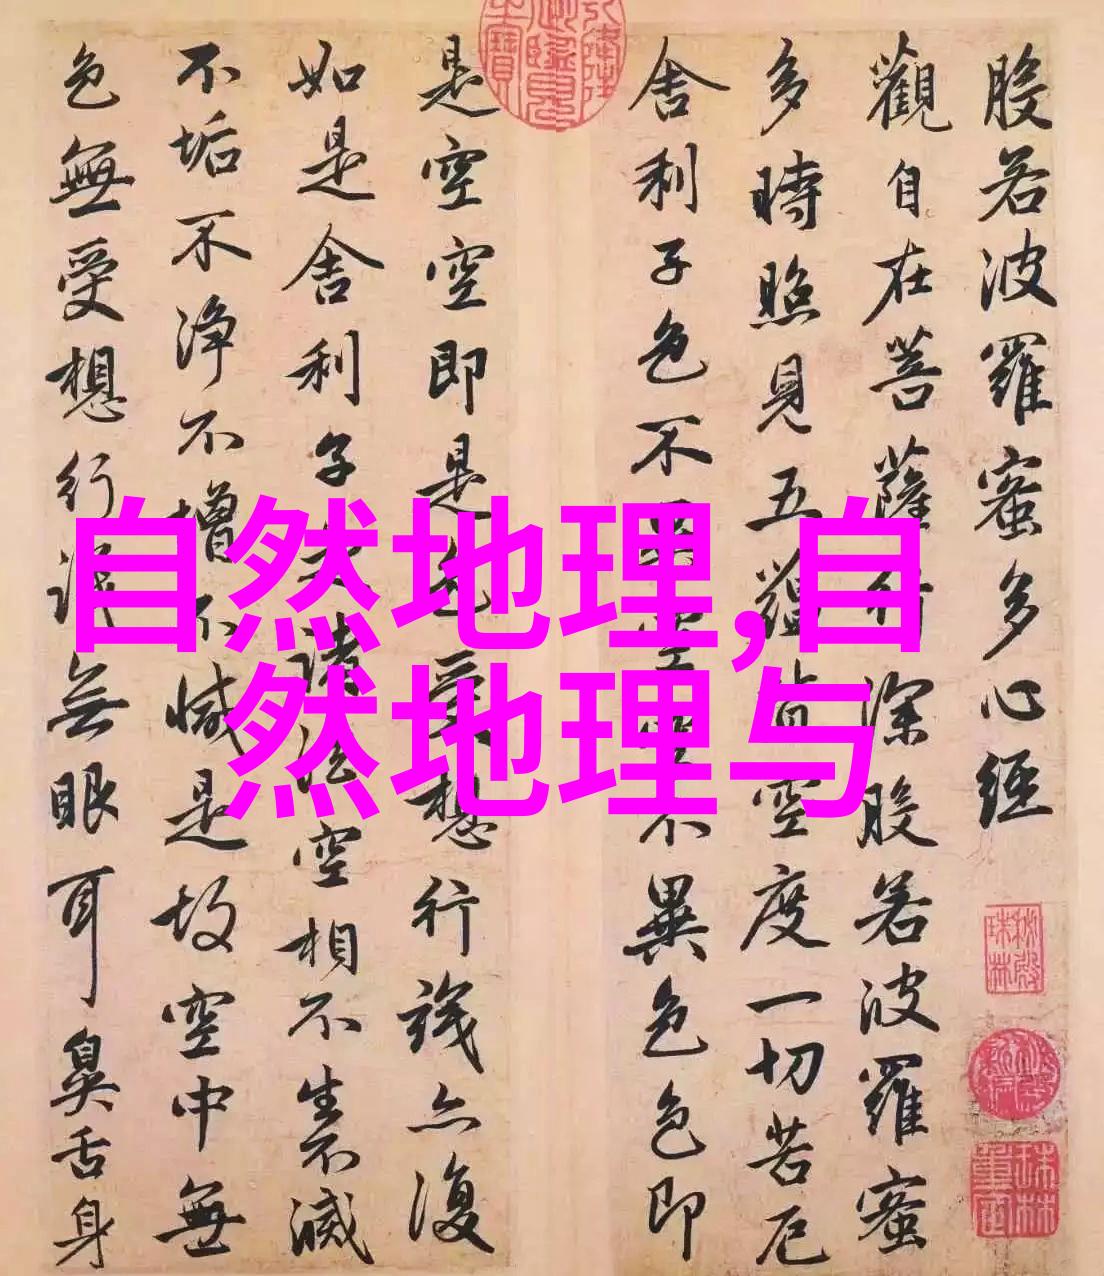 般若波羅蜜多心經
觀自在菩薩行深般若波羅蜜
多時照見五蘊皆空度一切苦厄
舍利子色不異空空不異色色即
是空空即是色受想行識亦復
如是舍利子是諸法空相不生不滅
不垢不淨不增不減是故空中無
色無受想行識無眼耳鼻舌身
自然地理,自
然地理与